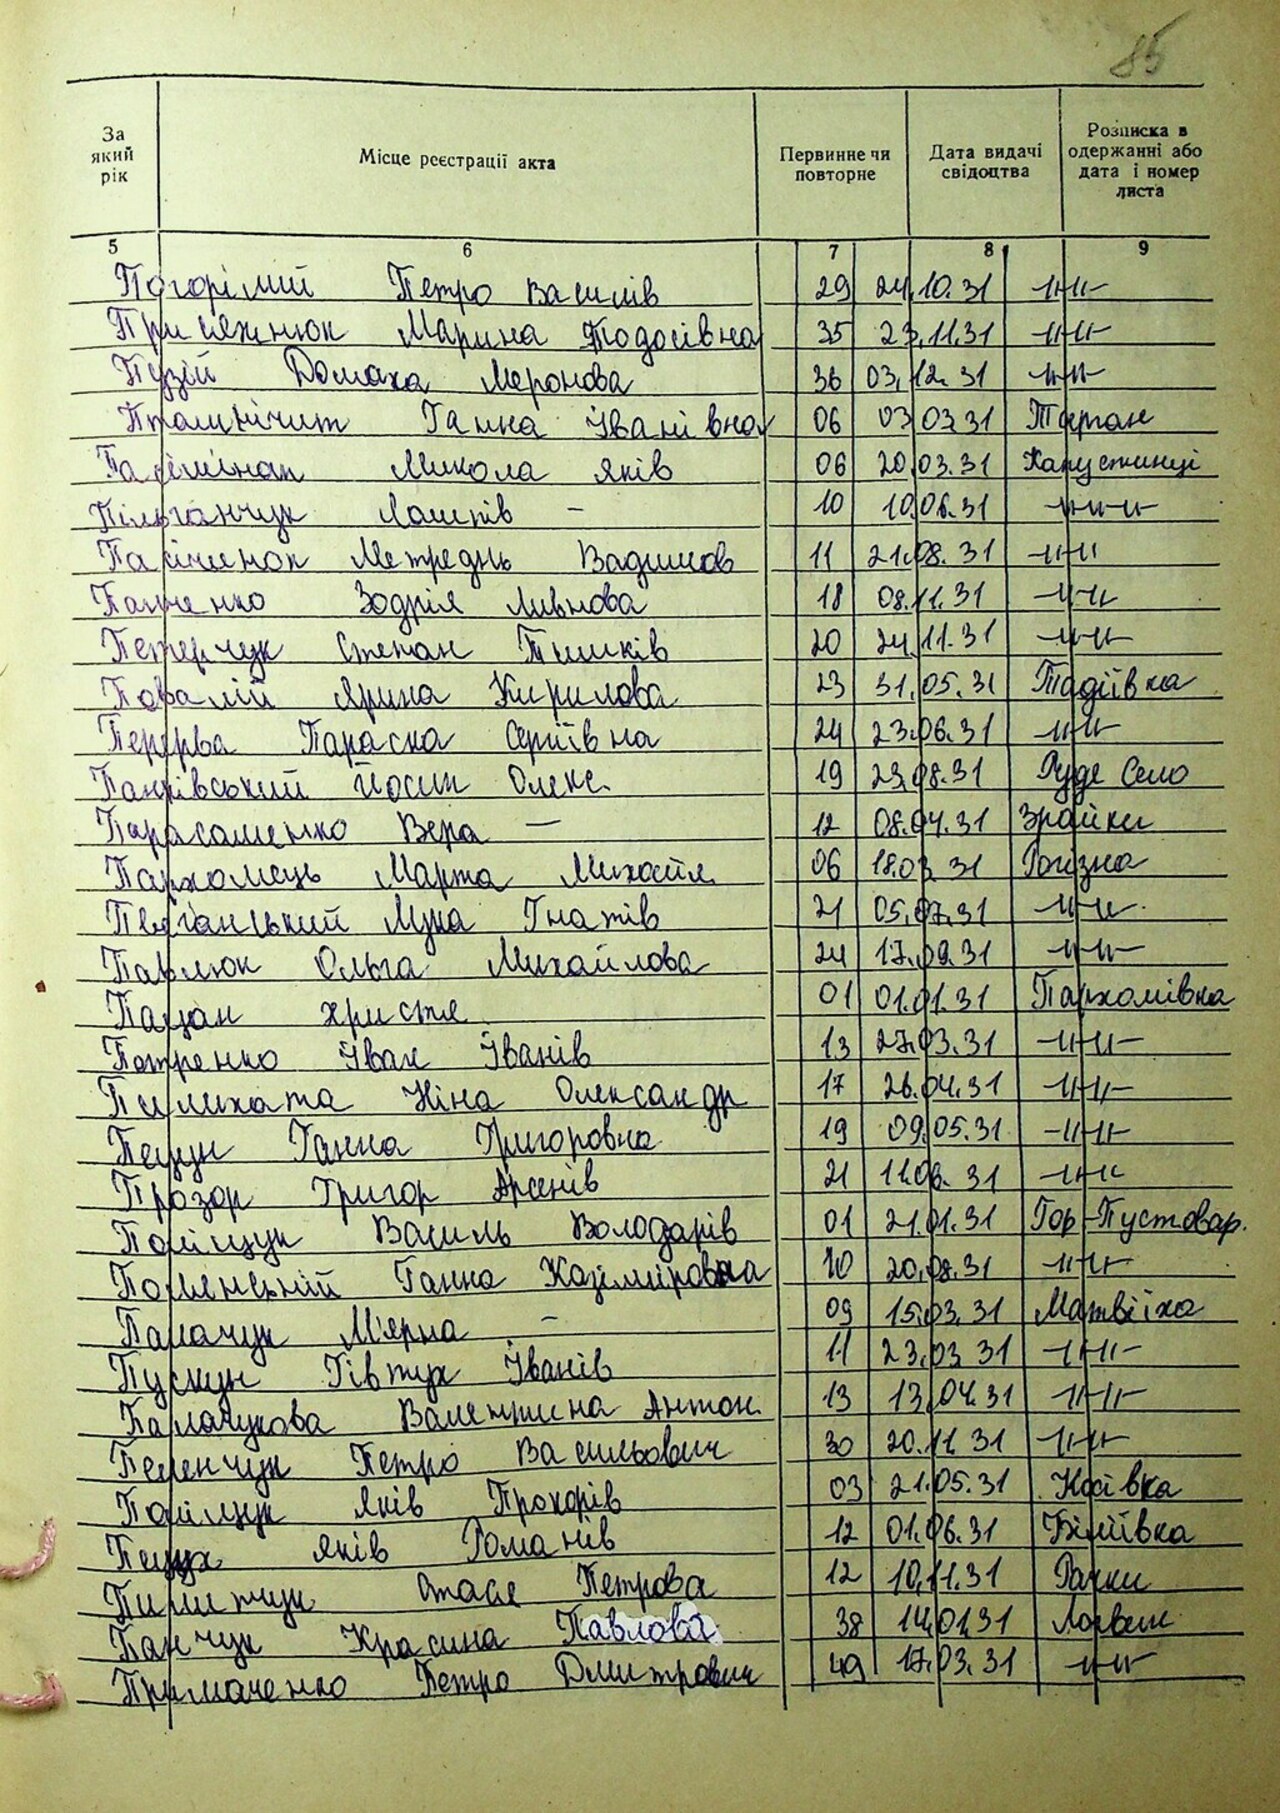 85
За який рік
Місце реєстрації акта
Первинне чи повторне
Дата видачі свідоцтва
Розписка в одержанні або дата і номер листа
5 6 7 8 9
Погорілий Петро Василів 29 24.10.31 -\\-\\-
Присяжнюк Марина Тодосівна 35 23.11.31 -\\-\\-
Пузій Домаха Меронова 36 03.12.31 -\\-\\-
Ганна Іванівна 06 03 03 31
Микола Яків 06 20.03.31 Капустинці
10 10.06.31 -\\-\\-
11 21.08.31 -\\-\\
Панченко 18 08.11.31 -\\-\\-
Петерчук Степан Тишків 20 24.11.31 -\\-\\-
Повалій Ярина Кирилова 23 31.05.31 Тадіївка
Перерва Параска Сергіївна 24 23.06.31 -\\-\\-
Йосип Олекс. 19 23.08.31 Руде Село
Парасоменко Вера — 12 08.04.31 Зрайки
Пархомець Марта Михайл. 06 18.03 31 Рогізна
Лука Гнатів 21 05.07.31 -\\-\\-
Павлюк Ольга Михайлова 24 17.09.31 -\\-\\-
Пацан Христя 01 01.01.31 Пархомівка
Петренко Іван Іванів 13 27.03.31 -\\-\\-
Пилихата Ніна Олександр 17 26.04.31 -\\-\\-
Пецун Ганна Григоровна 19 09.05.31 -\\-\\-
Прозор Григор Арсенів 21 11.08.31 -\\-\\
Поліщук Василь Володарів 01 21.01.31 Гор-Пустовар.
Ганна Казіміровна 10 20.08.31 -\\-\\-
Паламчук Мярна - 09 15.03.31 Матвіїха
Пускун Гівтух Іванів 11 23.03 31 -\\-\\-
Валентина Антон. 13 13.04.31 -\\-\\-
Пеленчук Петро Васильович 30 20.11.31 -\\-\\-
Поліщук Яків Прокорів 03 21.05.31 Косівка
Яків Романів 12 01.06.31 Біліївка
Пилипчук Стася Петрова 12 10.11.31 Рачки
Панчук Красина Павлова 38 14.01.31 Логвин
Примаченко Петро Дмитрович 49 17.03.31 -\\-\\-